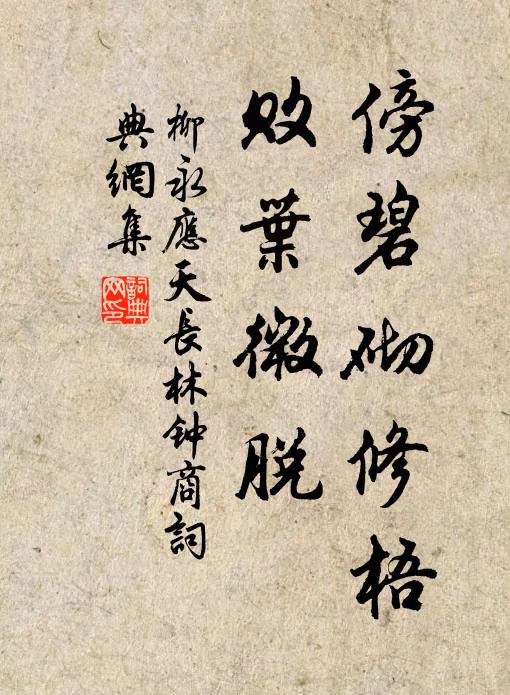 傍碧砌修梧
敗葉微脱
柳永應天長林钟商詞
典網集
詞典
网印